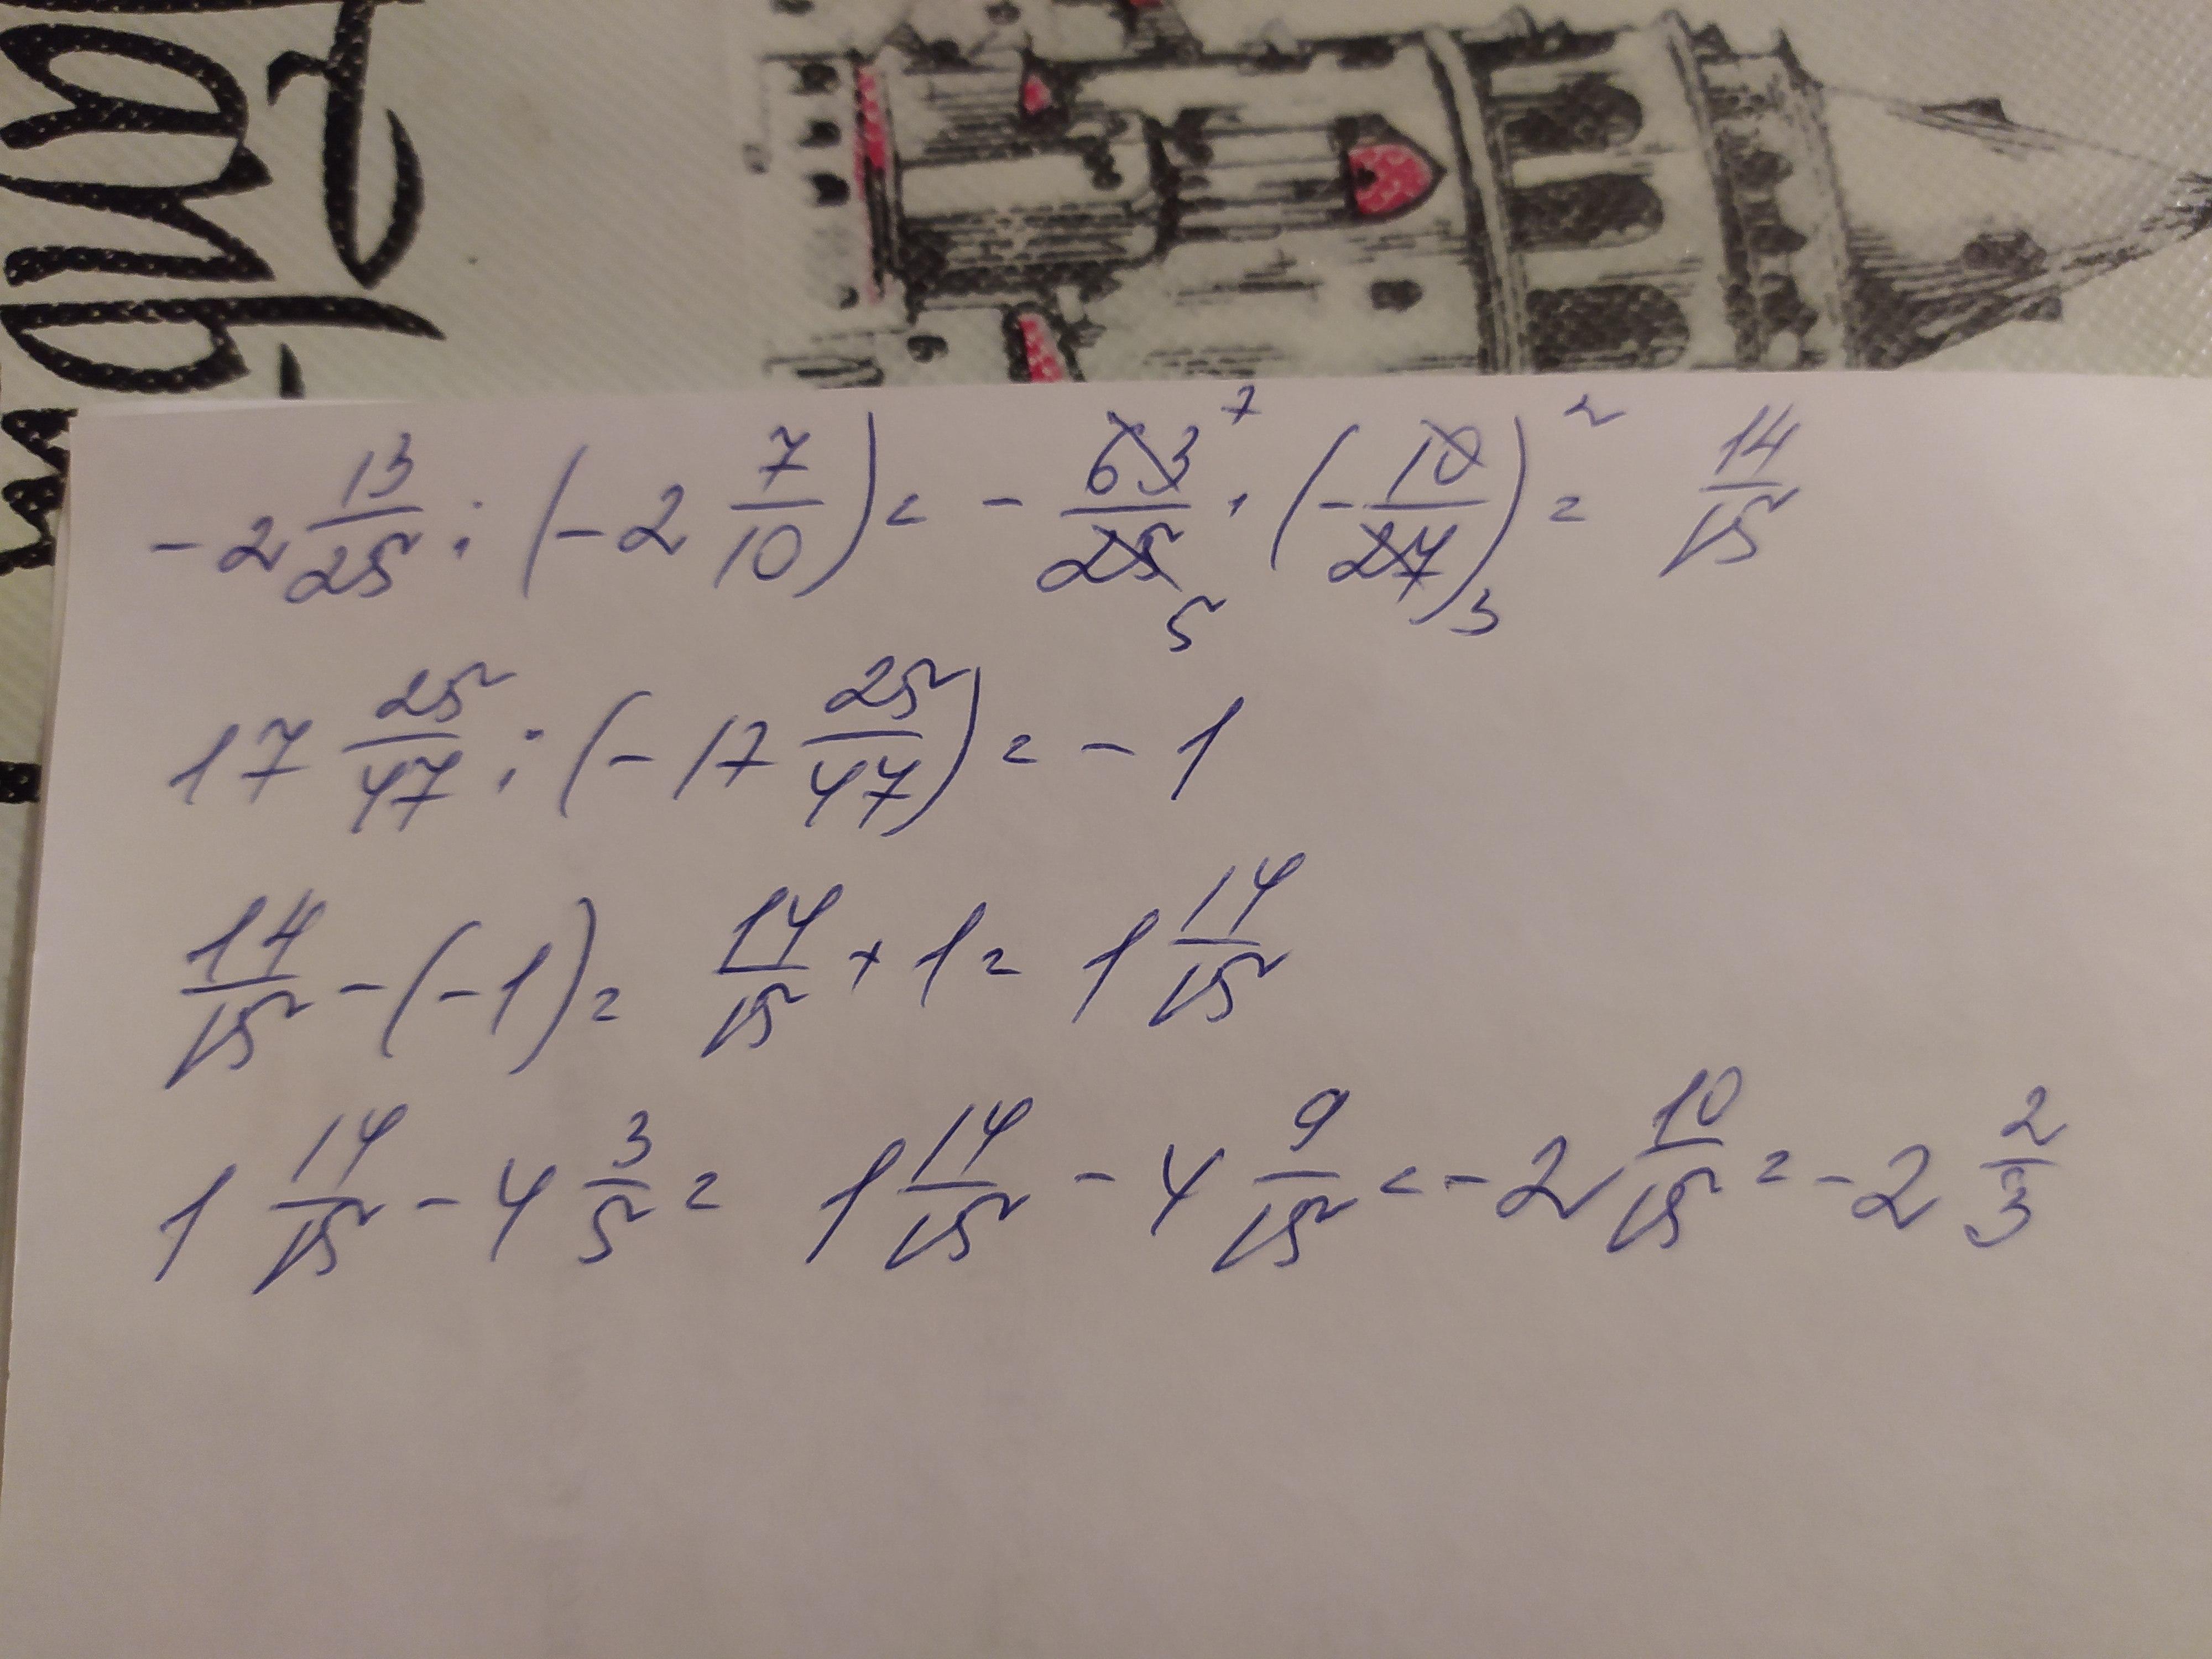 -2 13/25 : (-2 7/10) = - 63/25 · (-10/27) = 14/15
7 2
5 3
17 25/47 : (-17 25/47) = -1
14/15 - (-1) = 14/15 + 1 = 1 14/15
1 14/15 - 4 3/5 = 1 14/15 - 4 9/15 = -2 10/15 = -2 2/3